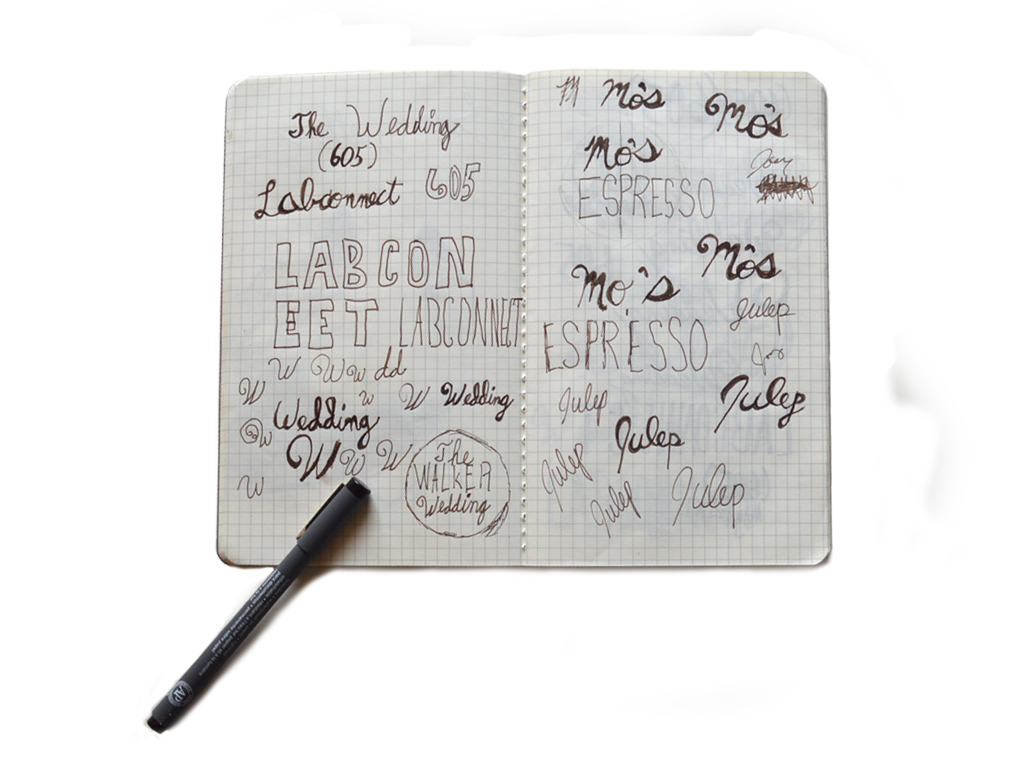 The Wedding
(605)
Labconnect 605
LABCON
EET LABCONNECT
W W W dd
W W W Wedding
Wedding
W W W W
W
The
WALKER
Wedding
M Mô's Mô's
Mô's
Joey
ESPRESSO
Mô's
Mo's
Julep
ESPRESSO
Julep Julep
Julep
Julep Julep
Julep
AP